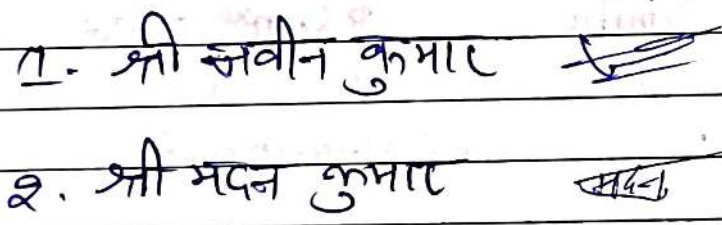 1. श्री नवीन कुमार
2. श्री मदन कुमार मदन